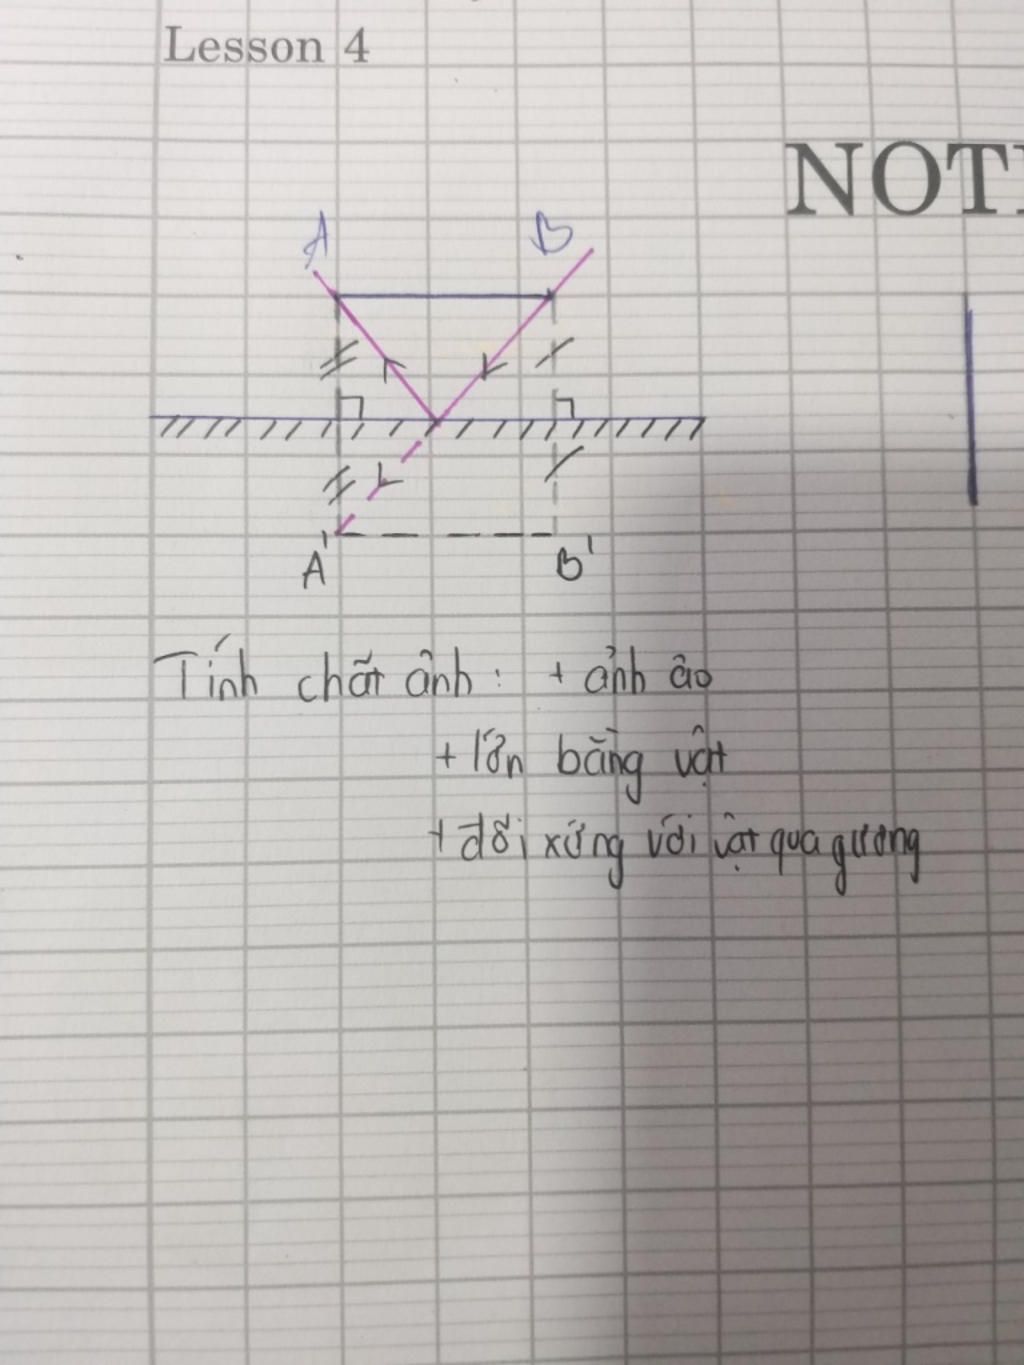 Lesson 4
NOT
A
B
A'
B'
Tính chất ảnh: + ảnh ảo
+ lớn bằng vật
+ đối xứng với vật qua gương